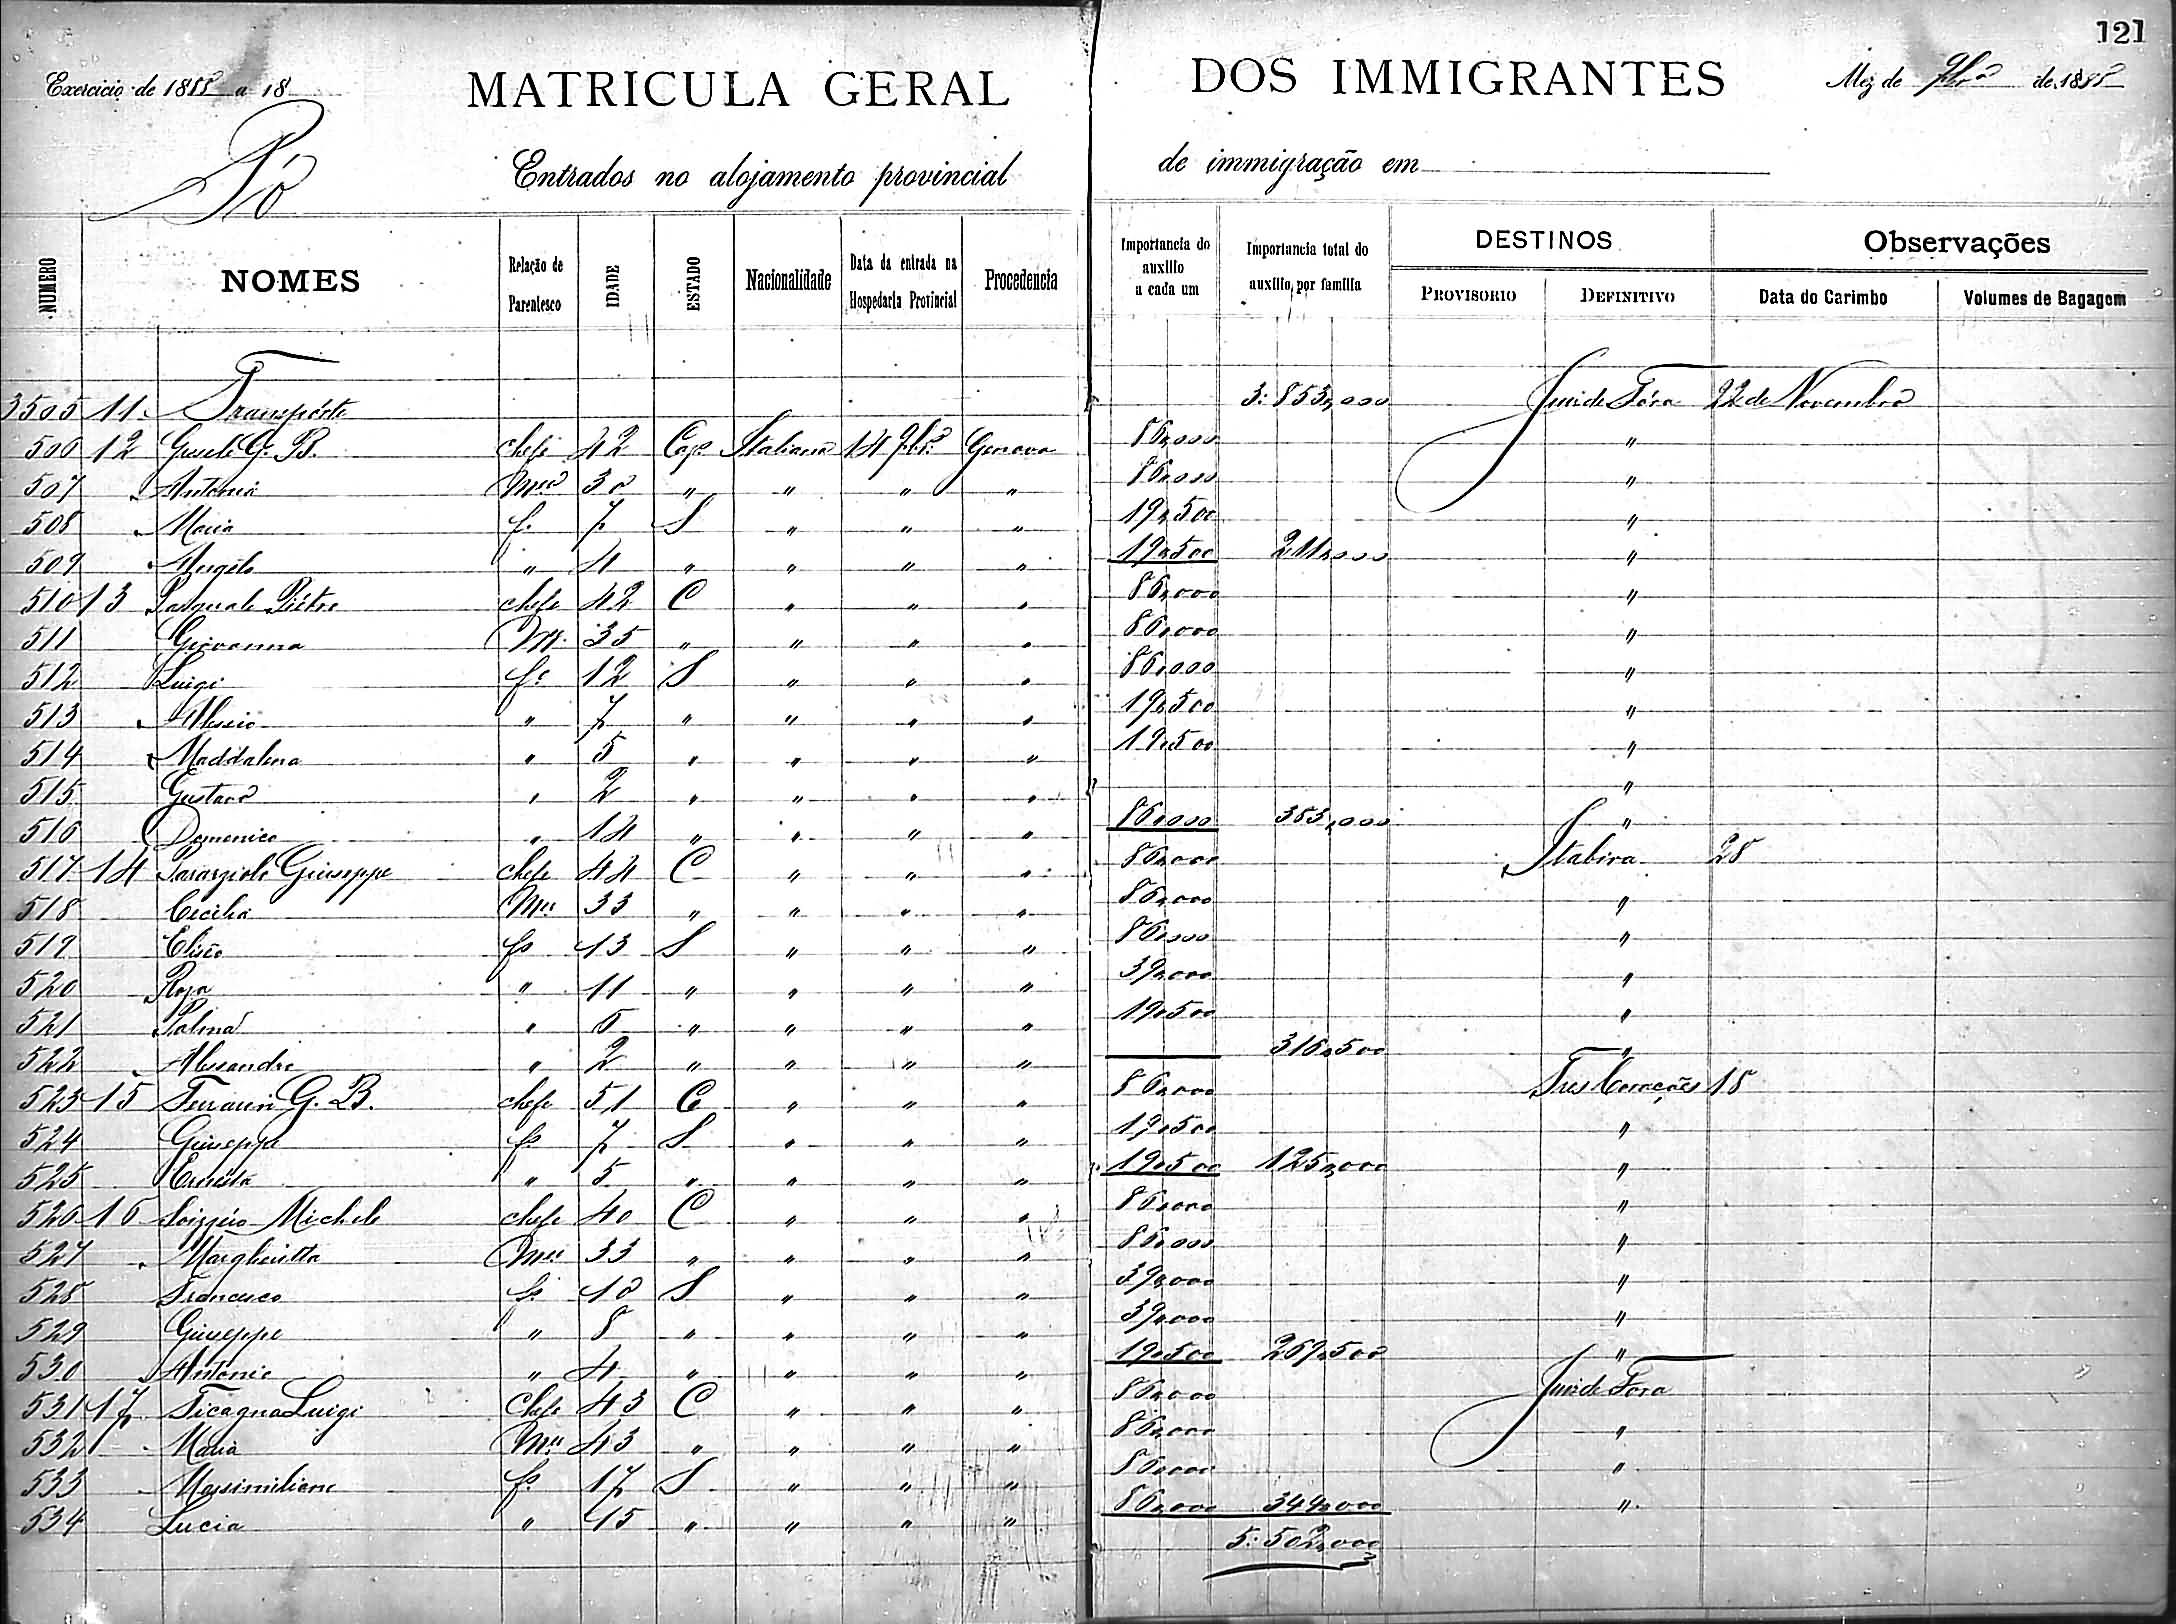 121
Exercicio de 1888 a 18
MATRICULA GERAL DOS IMMIGRANTES
Mez de 9brº de 1888
Pó
Entrados no alojamento provincial de immigração em
NUMERO NOMES Relação de Parentesco IDADE ESTADO Nacionalidade Data da entrada na Hospedaria Provincial Procedencia Importancia do auxilio a cada um Importancia total do auxilio por familia DESTINOS PROVISORIO DEFINITIVO Observações Data do Carimbo Volumes de Bagagem
3505 11 Transporte 3:853,000 Juiz de Fóra 22 de Novembro
506 12 G. B. chefe 42 Italiana 14 9brº Genova 86,000 "
507 Antonia Mer 30 " " " " 86,000 "
508 Maria f. 7 S " " " 19,500 "
509 Angelo " 4 " " " " 19,500 211,000 "
510 13 Pasquale Piétro chefe 42 C " " " 86,000 "
511 Giovanna Mr. 35 " " " " 86,000 "
512 Luigi fo 12 S " " " 86,000 "
513 Alessio " 7 " " " " 19,500 "
514 Maddalena " 5 " " " " 19,500 "
515 Gustavo " 2 " " " " "
516 Domenico " 14 " " " " 86,000 383,000 "
517 14 Giuseppe chefe 44 C " " " 86,000 Itabira 28
518 Cecilia Mer 33 " " " " 86,000 "
519 Eliseo fo 13 S " " " 86,000 "
520 Rosa " 11 " " " " 39,000 "
521 Palma " 6 " " " " 19,500 "
522 Alessandro " 2 " " " " 316,500 "
523 15 Ferrarin G. B. chefe 51 C " " " 86,000 Tres Corações 18
524 Giuseppe fo 7 S " " " 19,500 "
525 Ernesta " 5 " " " " 19,500 125,000 "
526 16 Michele chefe 40 C " " " 86,000 "
527 Margheritta Mer 33 " " " " 86,000 "
528 Francesco fo 10 S " " " 39,000 "
529 Giuseppe " 8 " " " " 39,000 "
530 Antonio " 4 " " " " 19,500 269,500 "
531 17 Luigi Chefe 43 C " " " 86,000 Juiz de Fora
532 Maria Mer 43 " " " " 86,000 "
533 Massimiliano fo 17 S " " " 86,000 "
534 Lucia " 15 " " " " 86,000 344,000 "
5:502,000